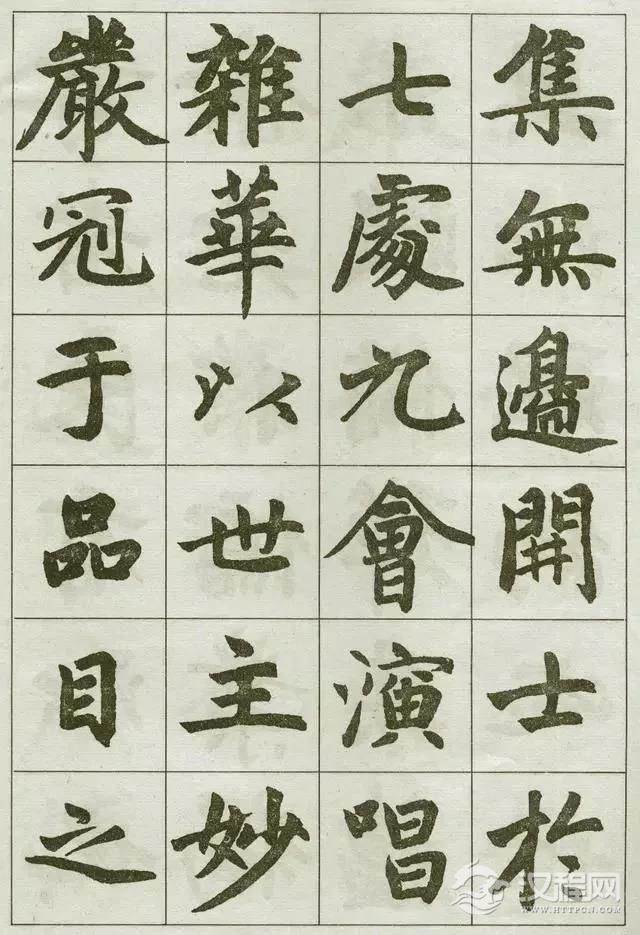 集無邊開士於
七處九會演唱
雜華以世主妙
嚴冠于品目之
汉程网
WWW.HTTPCN.COM